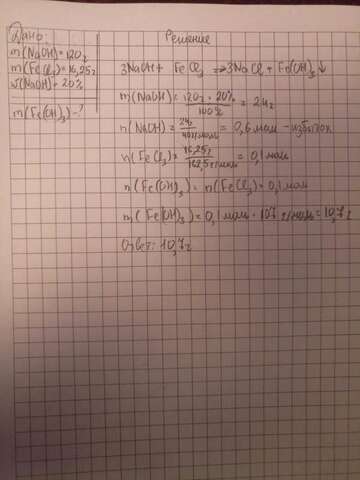 Дано:
m(NaOH) = 120г
m(FeCl₃) = 16,25г
ω(NaOH) = 20%
m(Fe(OH)₃) - ?
Решение
3NaOH + FeCl₃ ⇒ 3NaCl + Fe(OH)₃↓
m(NaOH) = 120г · 20% / 100% = 24г
n(NaOH) = 24г / 40г/моль = 0,6 моль - избыток
n(FeCl₃) = 16,25г / 162,5г/моль = 0,1 моль
n(Fe(OH)₃) = n(FeCl₃) = 0,1 моль
m(Fe(OH)₃) = 0,1 моль · 107 г/моль = 10,7г
Ответ: 10,7г